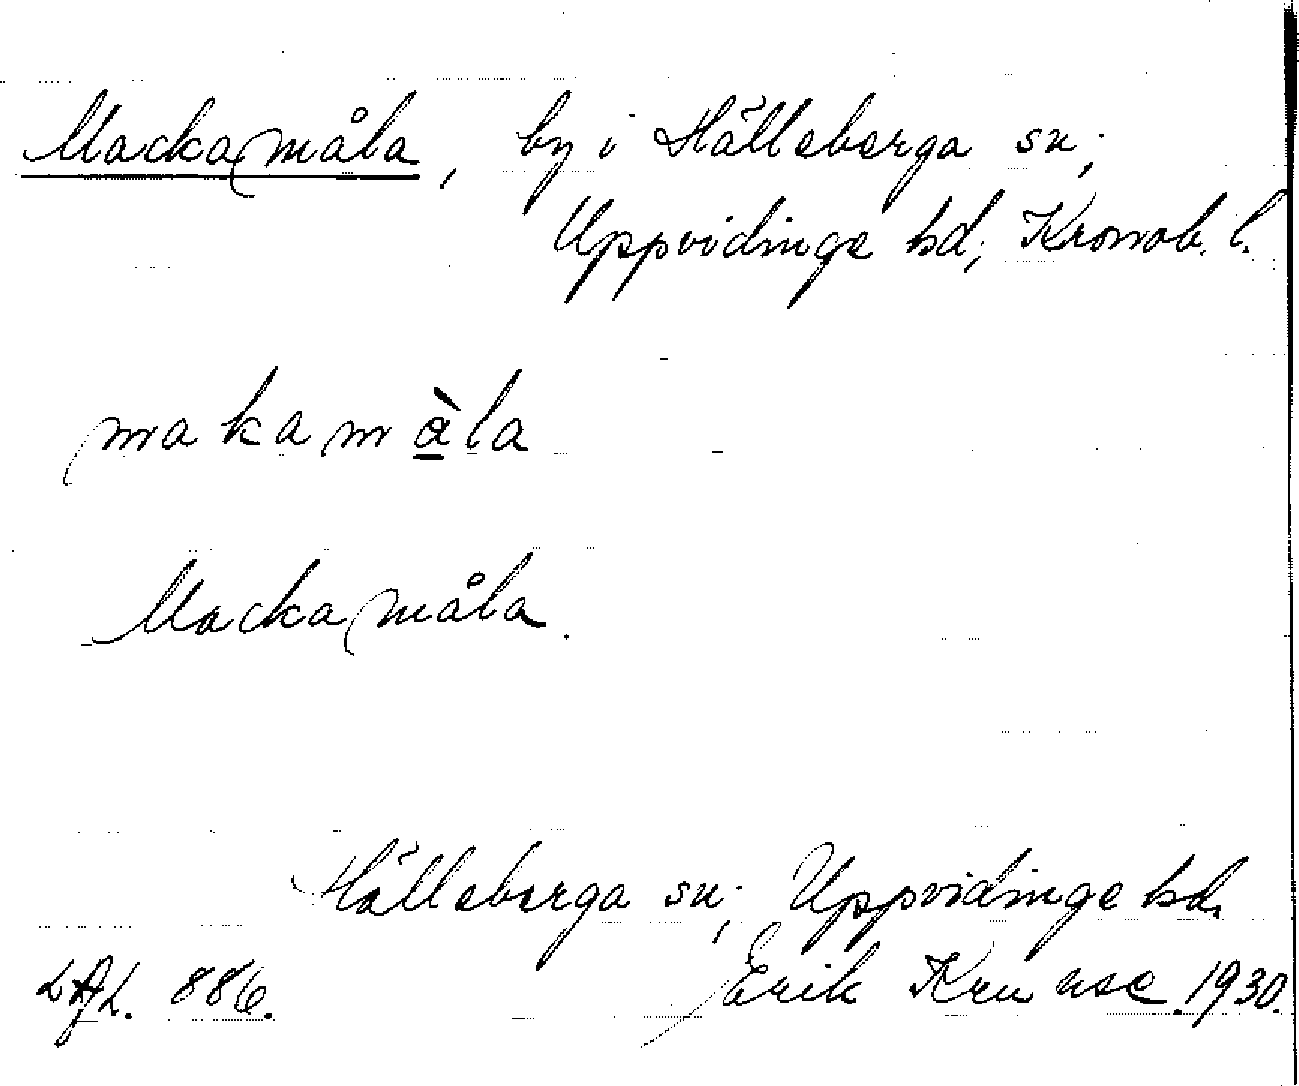 Mackamåla, by i Hälleberga sn;
Uppvidinge hd; Kronob. l.
makamàla
Mackamåla.
Hälleberga sn; Uppvidinge hd.
LAL. 886.
Erik 1930.